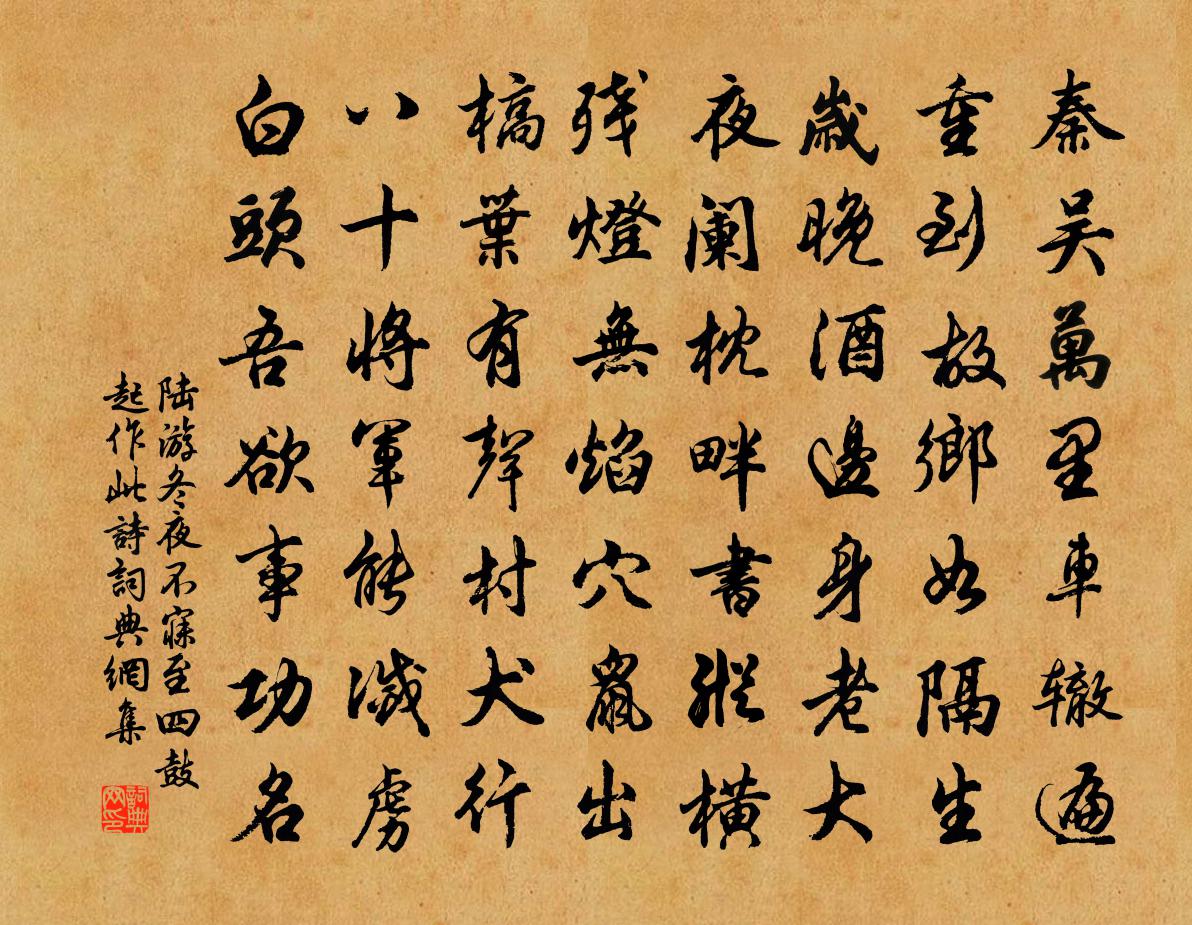 秦吴萬里車辙遍
重到故鄉如隔生
歳晚酒邊身老大
夜阑枕畔書縱橫
残燈無焰穴鼠出
槁葉有聲村犬行
八十將軍能滅虜
白頭吾欲事功名
陆游冬夜不寐至四鼓
起作此詩詞典網集
詞典网印